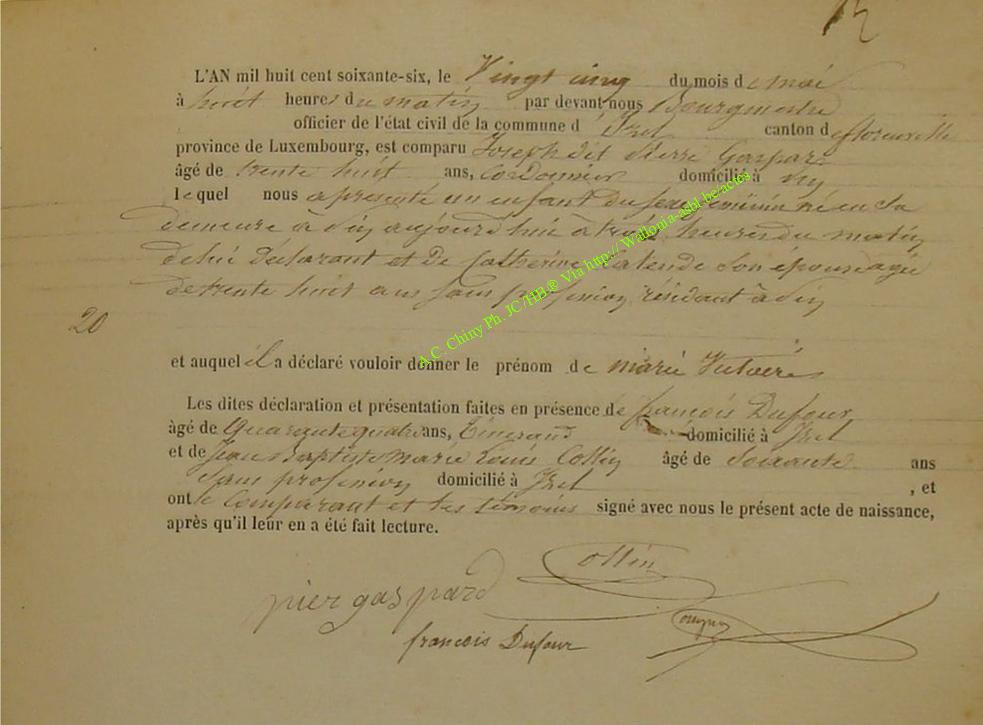 L'AN mil huit cent soixante-six, le Vingt cinq du mois de mai
à huit heures du matin par devant nous Bourgmestre
officier de l'état civil de la commune d'Izel canton de florenville
province de Luxembourg, est comparu Joseph dit Pierre Gaspard
âgé de trente huit ans, cordonnier domicilié à
lequel nous a présenté un enfant du sexe féminin né en sa
demeure à aujourd'hui à heures du matin
de lui déclarant et de Catherine son épouse agée
de trente huit ans sans profession, résidant à
20
et auquel il a déclaré vouloir donner le prénom de marie
Les dites déclaration et présentation faites en présence de françois Dufour
âgé de Quarante quatre ans, Tisserand domicilié à Izel
et de Jean Baptiste Marie Louis Collin âgé de Soixante ans
Sans profession domicilié à Izel , et
ont le comparant et les témoins signé avec nous le présent acte de naissance,
après qu'il leur en a été fait lecture.
Collin
pier gaspard
françois Dufour
A.C. Chiny Ph. JC/HB ® Via http:// Wallonia-asbl-be/actes